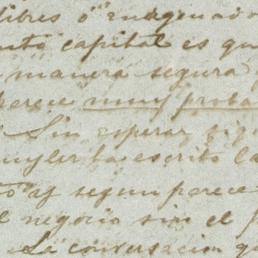 libres ó enagenado
capital es qu
manera segura
parece muy proba
Sin esperar
ha escrito la
y segun parece
el negocio sin el
La conversacion qu